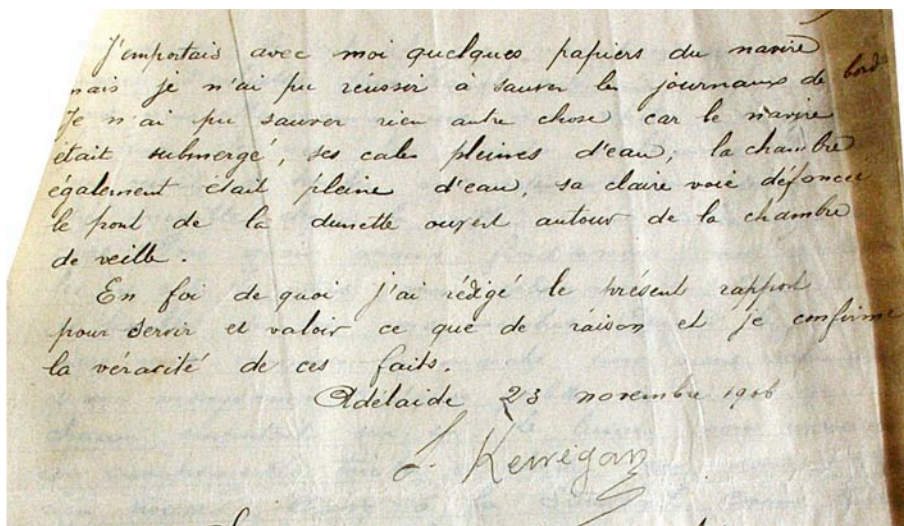 J'emportais avec moi quelques papiers du navire
mais je n'ai pu réussir à sauver les journaux de bord
Je n'ai pu sauver rien autre chose car le navire
était submergé, ses cales pleines d'eau, la chambre
également était pleine d'eau, sa claire voie défoncée
le pont de la dunette ouvert autour de la chambre
de veille.
En foi de quoi j'ai rédigé le présent rapport
pour servir et valoir ce que de raison et je confirme
la véracité de ces faits.
Adélaïde 23 novembre 1906
Kerrégan